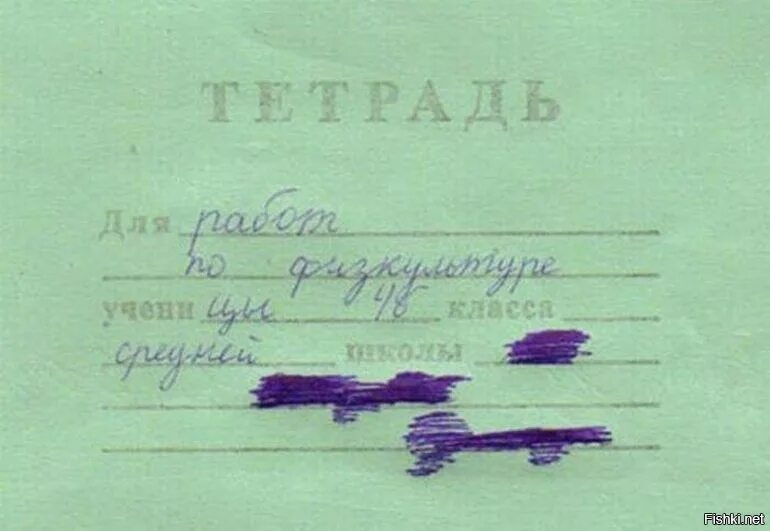 ТЕТРАДЬ
Для работ
по физкультуре
учени цы 4б класса
средней школы
Fishki.net